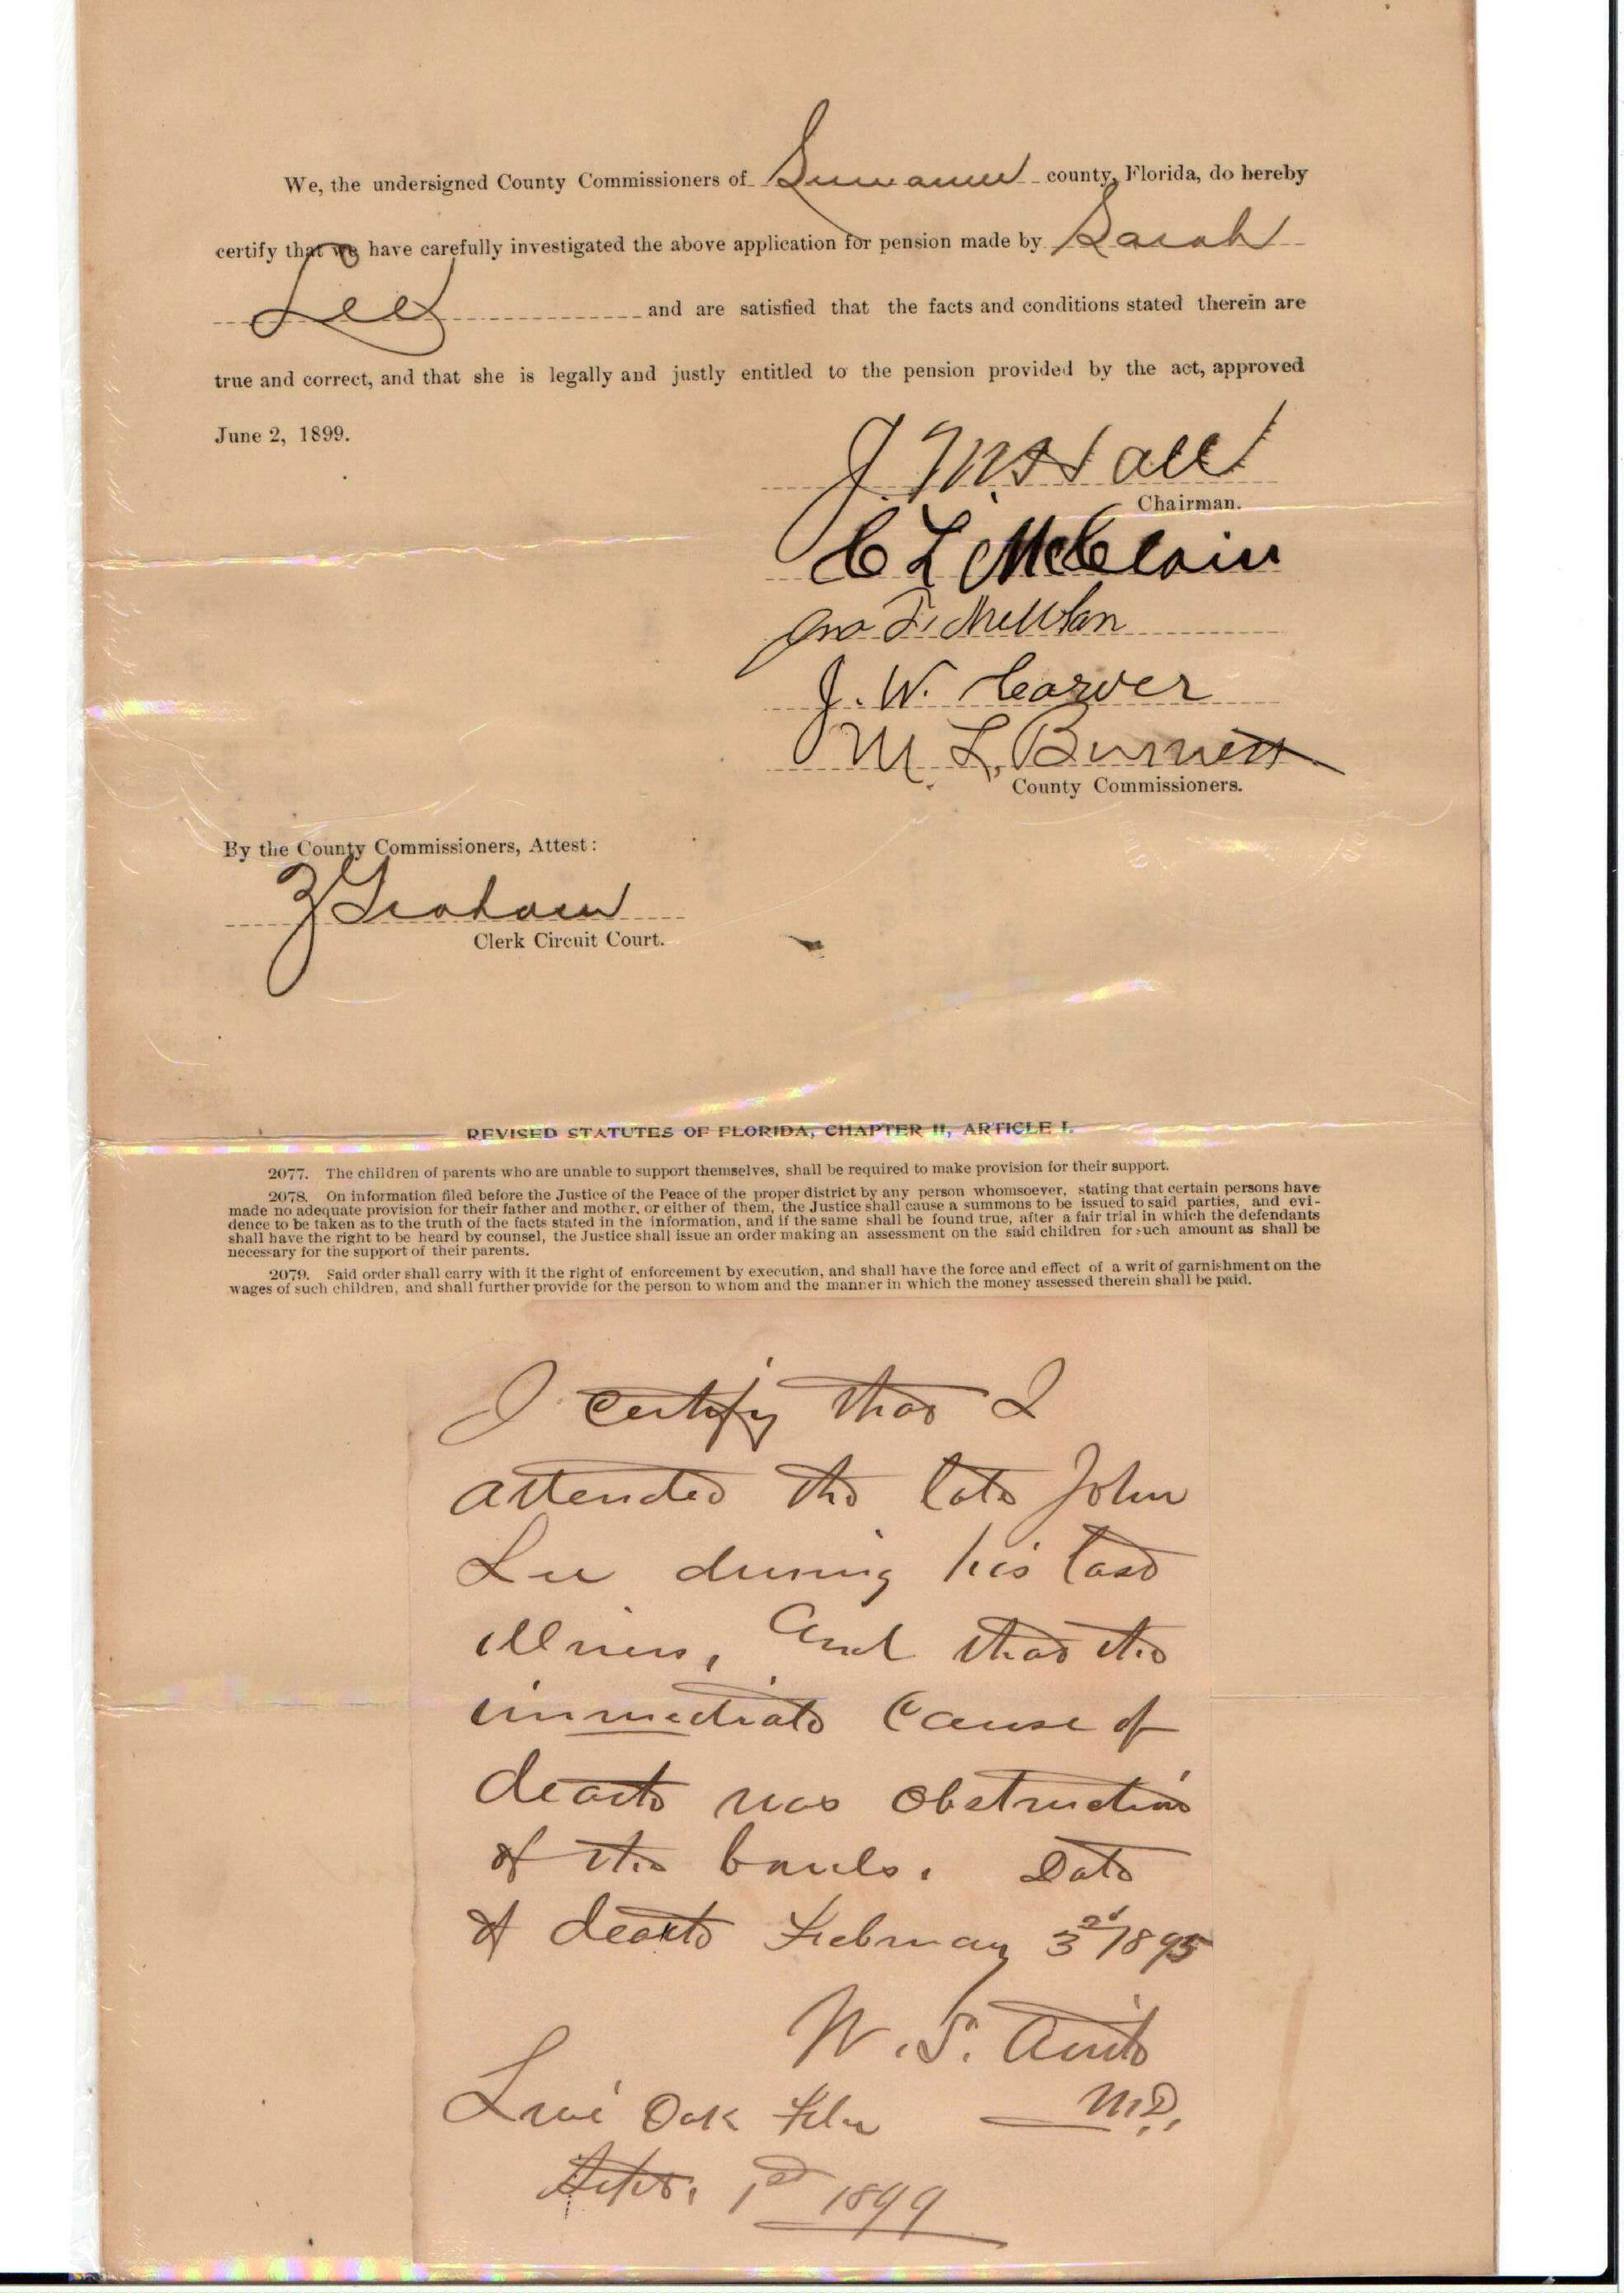 We, the undersigned County Commissioners of Suwannee county, Florida, do hereby
certify that we have carefully investigated the above application for pension made by Sarah
Lee and are satisfied that the facts and conditions stated therein are
true and correct, and that she is legally and justly entitled to the pension provided by the act, approved
June 2, 1899.
J M Hall
Chairman.
C L McClain
Jno F.
J. W. Carver
M L, Burnett
County Commissioners.
By the County Commissioners, Attest:
Z Graham
Clerk Circuit Court.
REVISED STATUTES OF FLORIDA, CHAPTER II, ARTICLE I.
2077. The children of parents who are unable to support themselves, shall be required to make provision for their support.
2078. On information filed before the Justice of the Peace of the proper district by any person whomsoever, stating that certain persons have
made no adequate provision for their father and mother, or either of them, the Justice shall cause a summons to be issued to said parties, and evi-
dence to be taken as to the truth of the facts stated in the information, and if the same shall be found true, after a fair trial in which the defendants
shall have the right to be heard by counsel, the Justice shall issue an order making an assessment on the said children for such amount as shall be
necessary for the support of their parents.
2079. Said order shall carry with it the right of enforcement by execution, and shall have the force and effect of a writ of garnishment on the
wages of such children, and shall further provide for the person to whom and the manner in which the money assessed therein shall be paid.
I certify that I
attended the late John
Lee during his last
illness, and that the
immediate cause of
death was obstruction
of the bowels. Date
of death February 3rd 1895
W. S.
M.D.
Live Oak Fla
Sept. 1st 1899